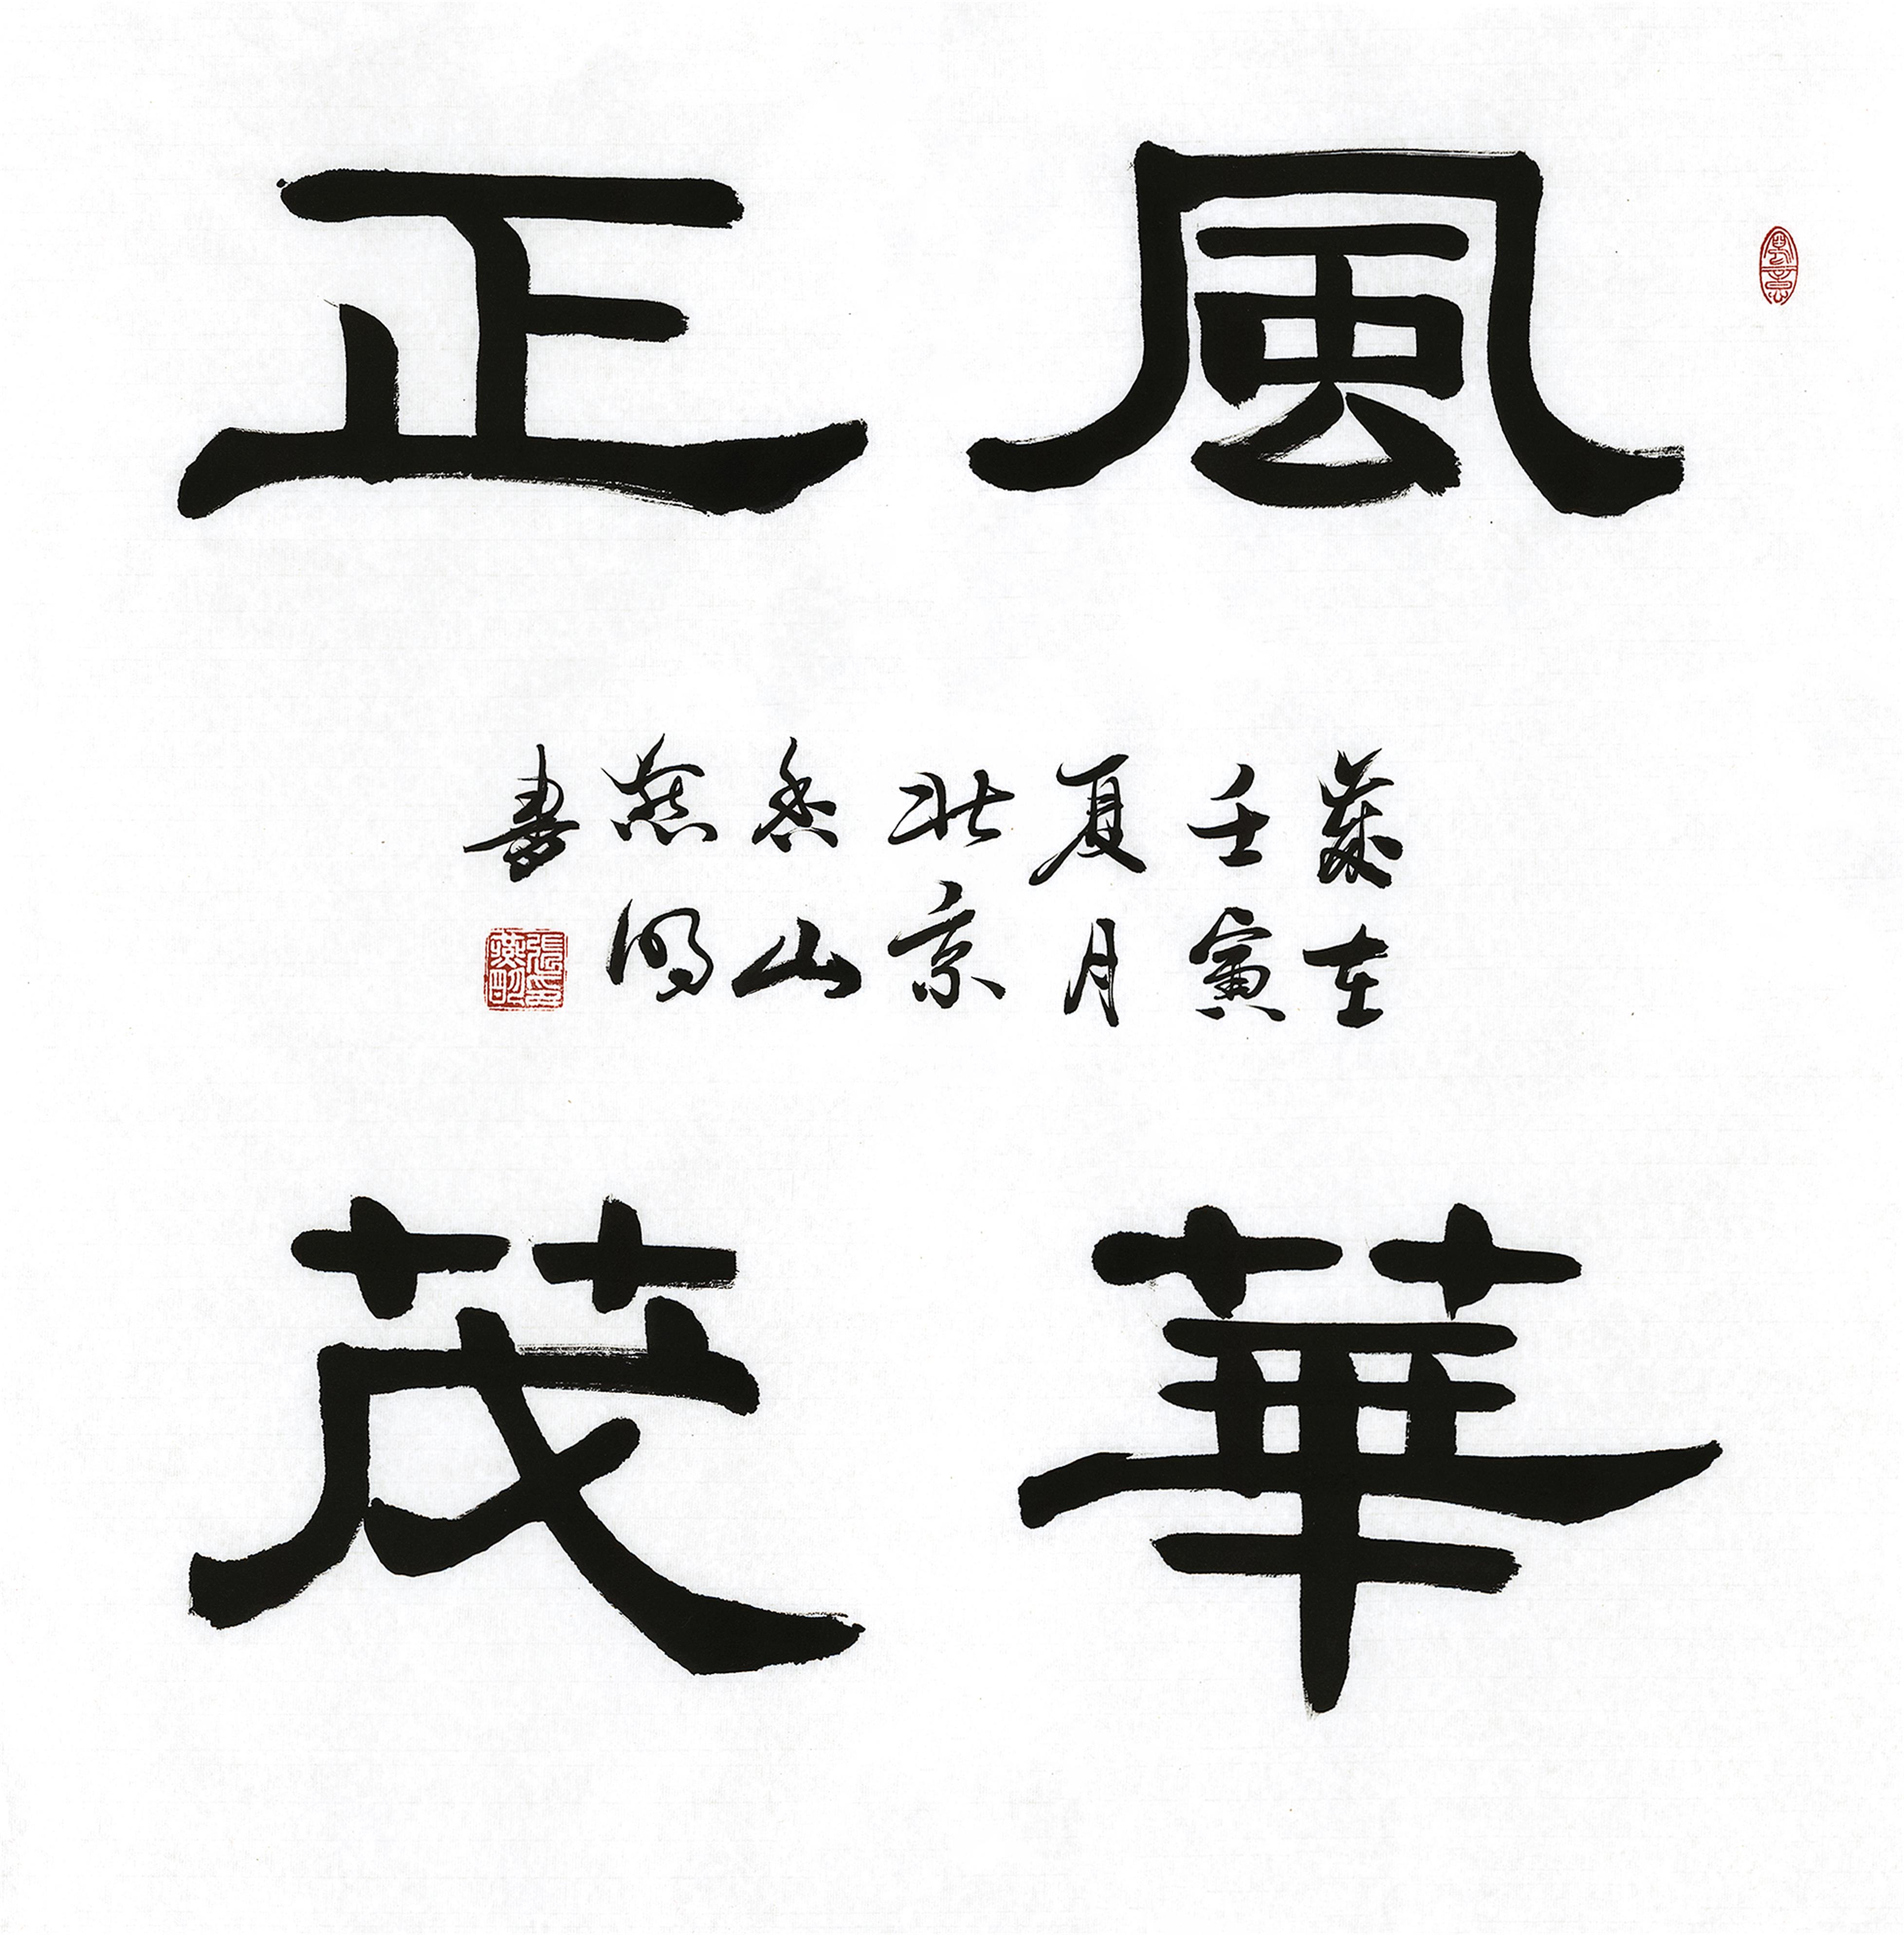 風華
正茂
歲在
壬寅
夏月
北京
香山
燕明
書